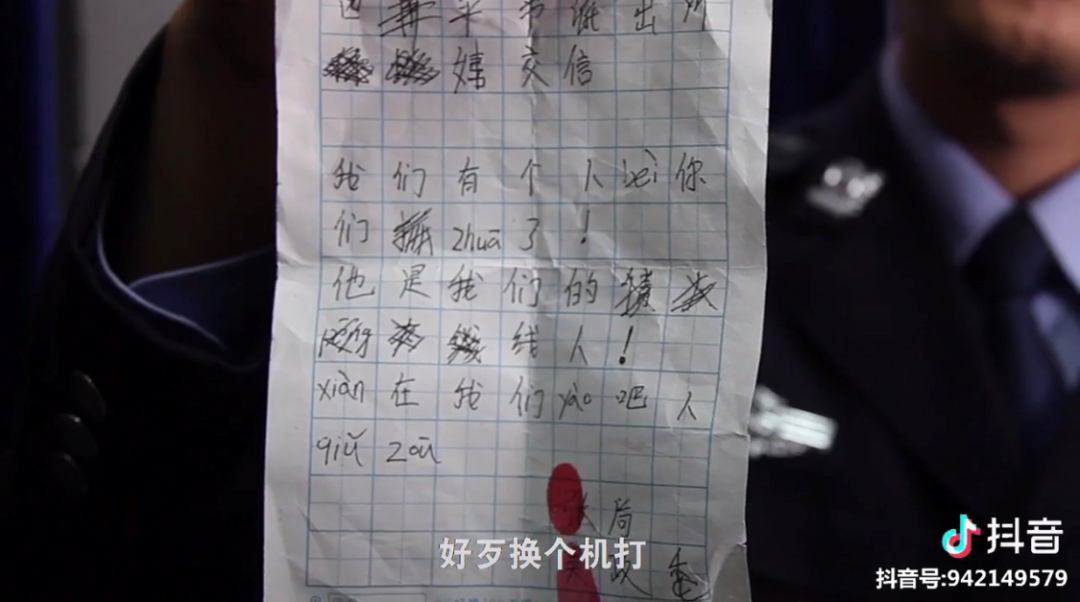 出所
交信
我们有个人bèi你
们zhuā了！
他是我们的
线人！
xiàn在我们yào吧人
qiǔ zoū
局
好歹换个机打
抖音
抖音号:942149579